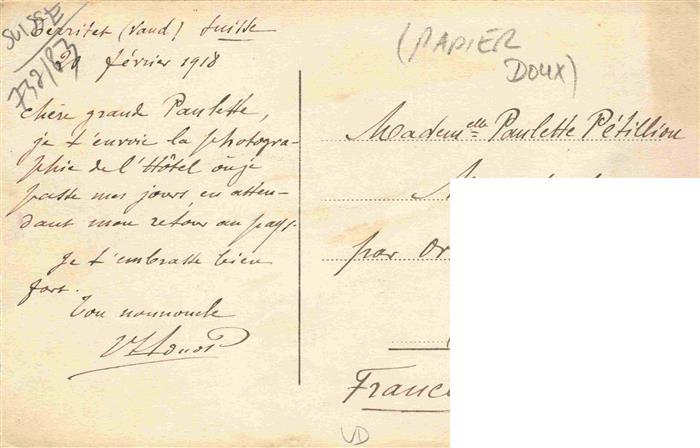 SUISSE
738/83
Territet (Vaud) Suisse
29 février 1918
(PAPIER
DOUX)
Chère grande Paulette,
je t'envoie la photogra-
phie de l'Hôtel où je
passe mes jours, en atten-
dant mon retour au pays.
Je t'embrasse bien
fort.
Ton nonnoncle
Madem elle Paulette Pétillion
par
France
VD